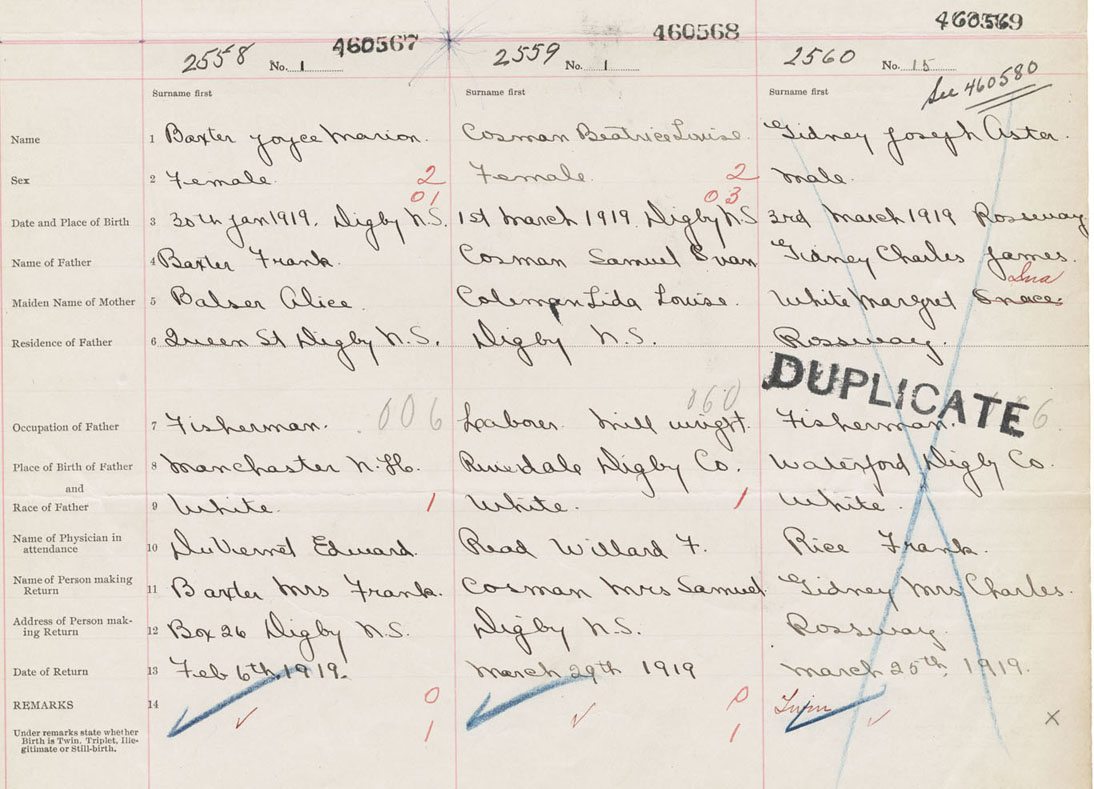 2558 No. 1 460567 2559 No. 1 460568 2560 No. 15 460569
See 460580
Surname first Surname first Surname first
Name 1 Baxter Joyce Marion. Cosman Beatrice Louise. Gidney Joseph Aster.
Sex 2 Female. 2 Female. 2 male.
01 03
Date and Place of Birth 3 30th Jan 1919. Digby N.S. 1st March 1919. Digby N.S 3rd March 1919 Rossway.
Name of Father 4 Baxter Frank. Cosman Samuel Evan Gidney Charles James.
Maiden Name of Mother 5 Balser Alice Coleman Lida Louise. White Margret
Residence of Father 6 Queen St Digby N.S. Digby N.S. Rossway.
DUPLICATE
Occupation of Father 7 Fisherman. 006 Laborer. Mill wright. 060 Fisherman. 6
Place of Birth of Father 8 Manchester N.H. Riverdale Digby Co. Waterford Digby Co.
and
Race of Father 9 White. 1 White. 1 White.
Name of Physician in
attendance 10 DuVernet Edward. Read Willard F. Rice Frank.
Name of Person making
Return 11 Baxter Mrs Frank. Cosman Mrs Samuel Gidney Mrs Charles.
Address of Person mak-
ing Return 12 Box 26 Digby N.S. Digby N.S. Rossway.
Date of Return 13 Feb 6th 1919. March 29th 1919 March 25th 1919.
REMARKS 14 0 0 Twin
Under remarks state whether 1 1 x
Birth is Twin. Triplet, Ille-
gitimate or Still-birth.